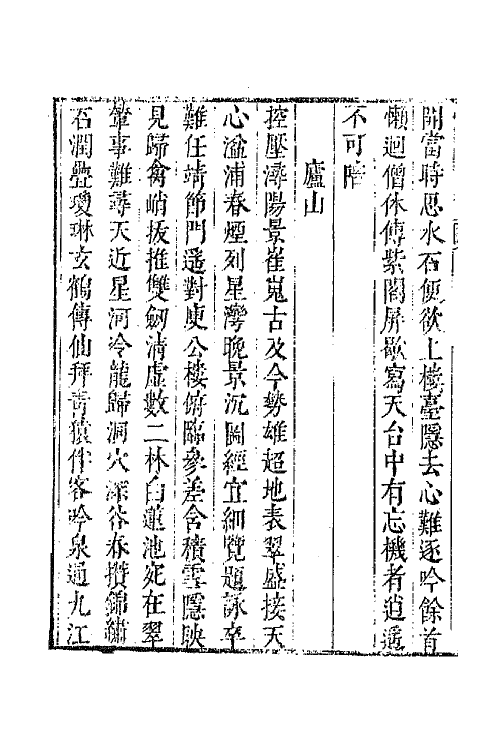 開當時思水石便欲上樓臺隱去心難逐吟餘首
懶迴僧休傳紫閣屏歇寫天台中有忘機者逍遙
不可階
廬山
控壓潯陽景崔嵬古及今勢雄超地表翠盛接天
心湓浦春煙列星灣晚景沉圖經宜細覽題詠卒
難任靖節門遙對庾公樓俯臨參差含積雪隱映
見歸禽峭拔推雙劒清虛數二林白蓮池宛在翠
輦事難尋天近星河冷龍歸洞穴深谷春攢錦繡
石潤疊瓊琳玄鶴傳仙拜青猿伴客吟泉通九江